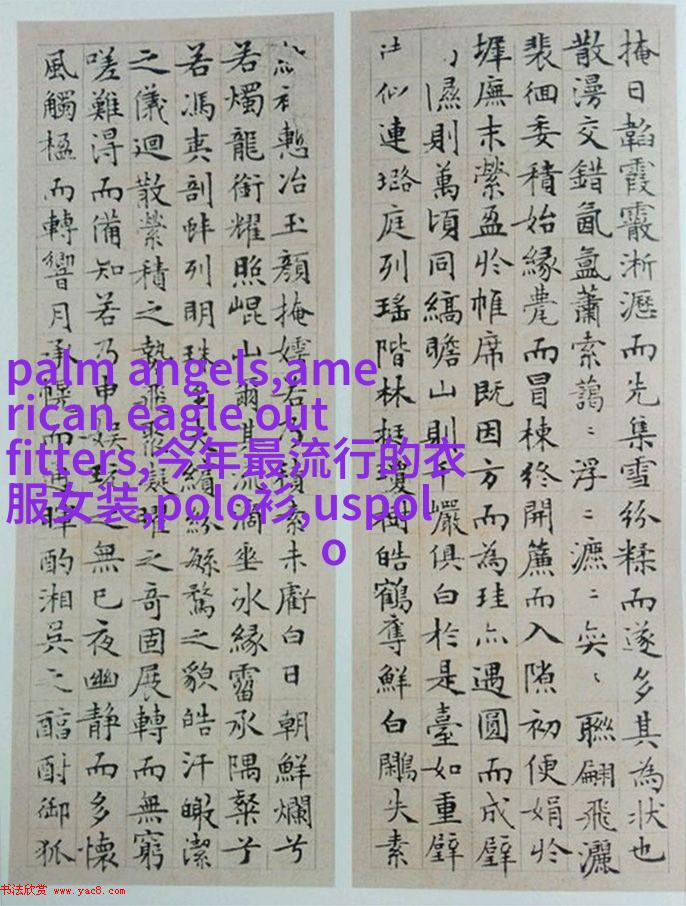 掩日韜霞霰淅瀝而先集雪紛糅而遂多其為狀也
散漫交錯氤氳蕭索藹〻浮〻瀌〻奕〻聯翩飛灑
裴徊委積始緣甍而冒棟終開簾而入隙初便娟於
墀廡末縈盈於帷席既因方而為珪亦遇圓而成璧
隰則萬頃同縞瞻山則千巖俱白於是臺如重璧
似連璐庭列瑤階林挺瓊樹皓鶴奪鮮白鷴失素
慙冶玉顏掩嫮若乃積素未虧白日朝鮮爛兮
若燭龍銜耀照崐山爾其流滴垂冰緣霤承隅粲兮
若馮夷剖蚌列明珠至夫繽紛繁騖之貌皓汗曒潔
之儀迴散縈積之勢飛聚凝曜之奇固展轉而無窮
嗟難得而備知若乃申娛玩之無已夜幽靜而多懷
風觸楹而轉響月承幌而通暉酌湘吳之醇酎御狐
palm angels,ame
rican eagle out
fitters,今年最流行的衣
服女装,polo衫,uspol
o
书法欣赏 www.yac8.com